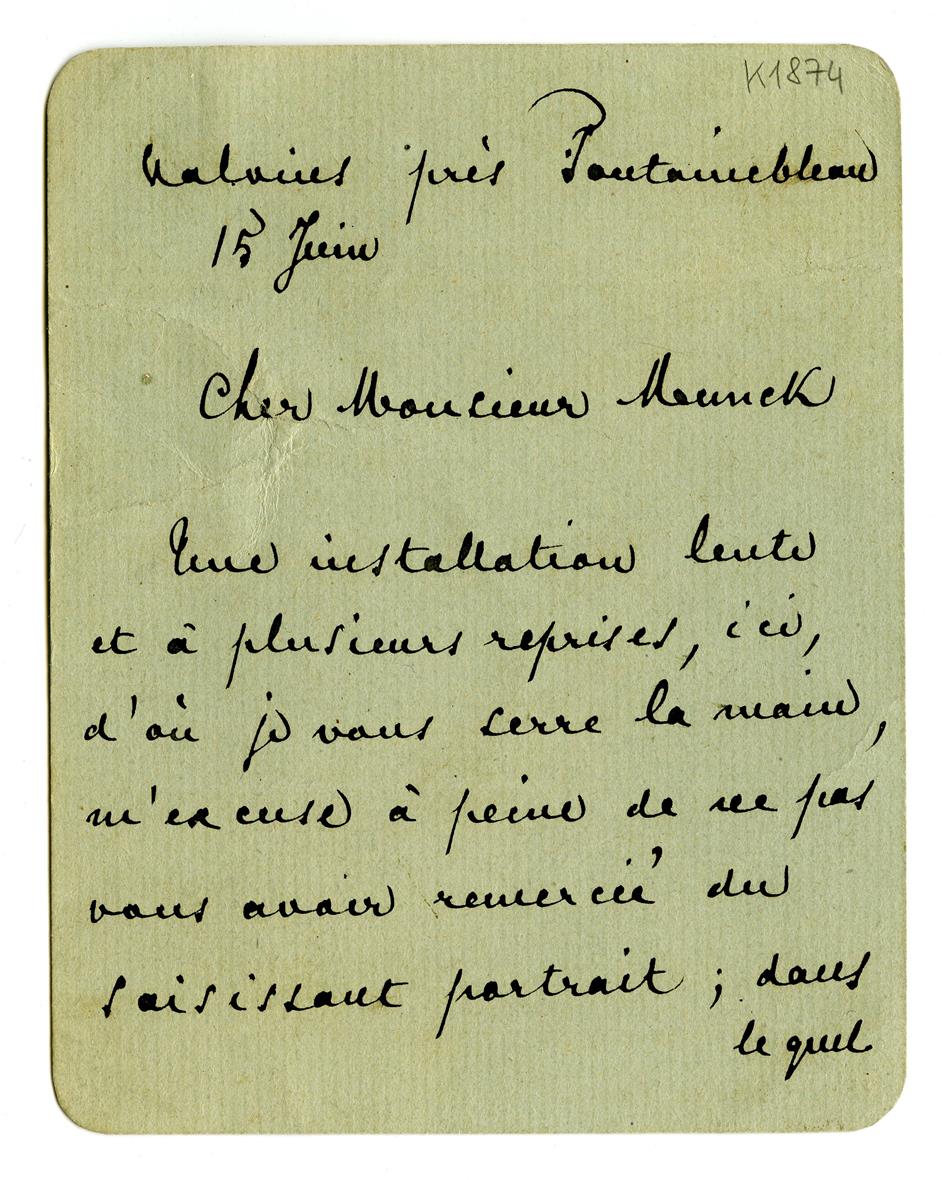 K1874
Valvins près Fontainebleau
15 Juin
Cher Monsieur Munck
Une installation lente
et à plusieurs reprises, ici,
d'où je vous serre la main,
m'excuse à peine de ne pas
vous avoir remercié du
saisissant portrait ; dans
le quel